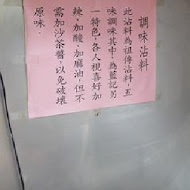 調味沾料
此沾料為祖傳沾料，五
味調味其中，為藍記另
一特色，各人視喜好加
辣、加酸、加麻油，但不
需加沙茶醬，以免破壞
原味。